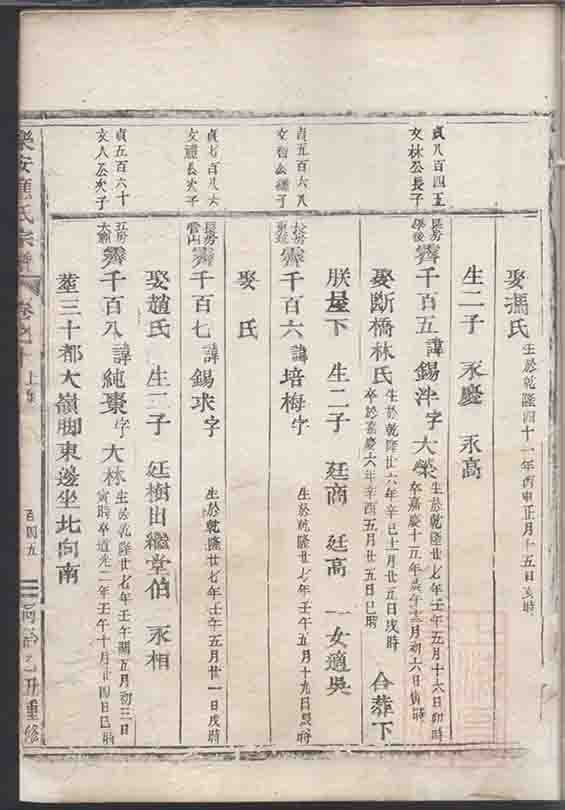 娶馮氏 生於乾隆四十一年丙申正月十五日亥時
生二子 永慶 永高
貞八百四五
文林公長子
長房
霽千百五 諱錫泮 字大榮 生於乾隆廿七年壬午五月十六日卯時
卒嘉慶十五年庚午十二月初六日寅時
娶斷橋林氏 生於乾隆廿六年辛巳十月廿五日戌時
卒於嘉慶六年辛酉五月廿五日巳時 合葬下
朕屋下 生二子 廷商 廷高 一女適吳
貞五百六八
長房
霽千百六 諱培梅 字 生於乾隆廿七年壬午五月十九日辰時
娶 氏
貞七百八六
文禮公次子
長房
霽千百七 諱錫求 字 生於乾隆廿七年壬午五月廿一日戌時
娶趙氏 生二子 廷樹出繼堂伯 永相
貞五百六十
文人公次子
霽千百八 諱純棗 字大林 生於乾隆廿七年壬午閏五月初三日
寅時卒道光二年壬午十月廿四日巳時
葬三十都大嶺脚東邊坐北向南
樂安 氏宗譜 卷之十上 百四五 重修